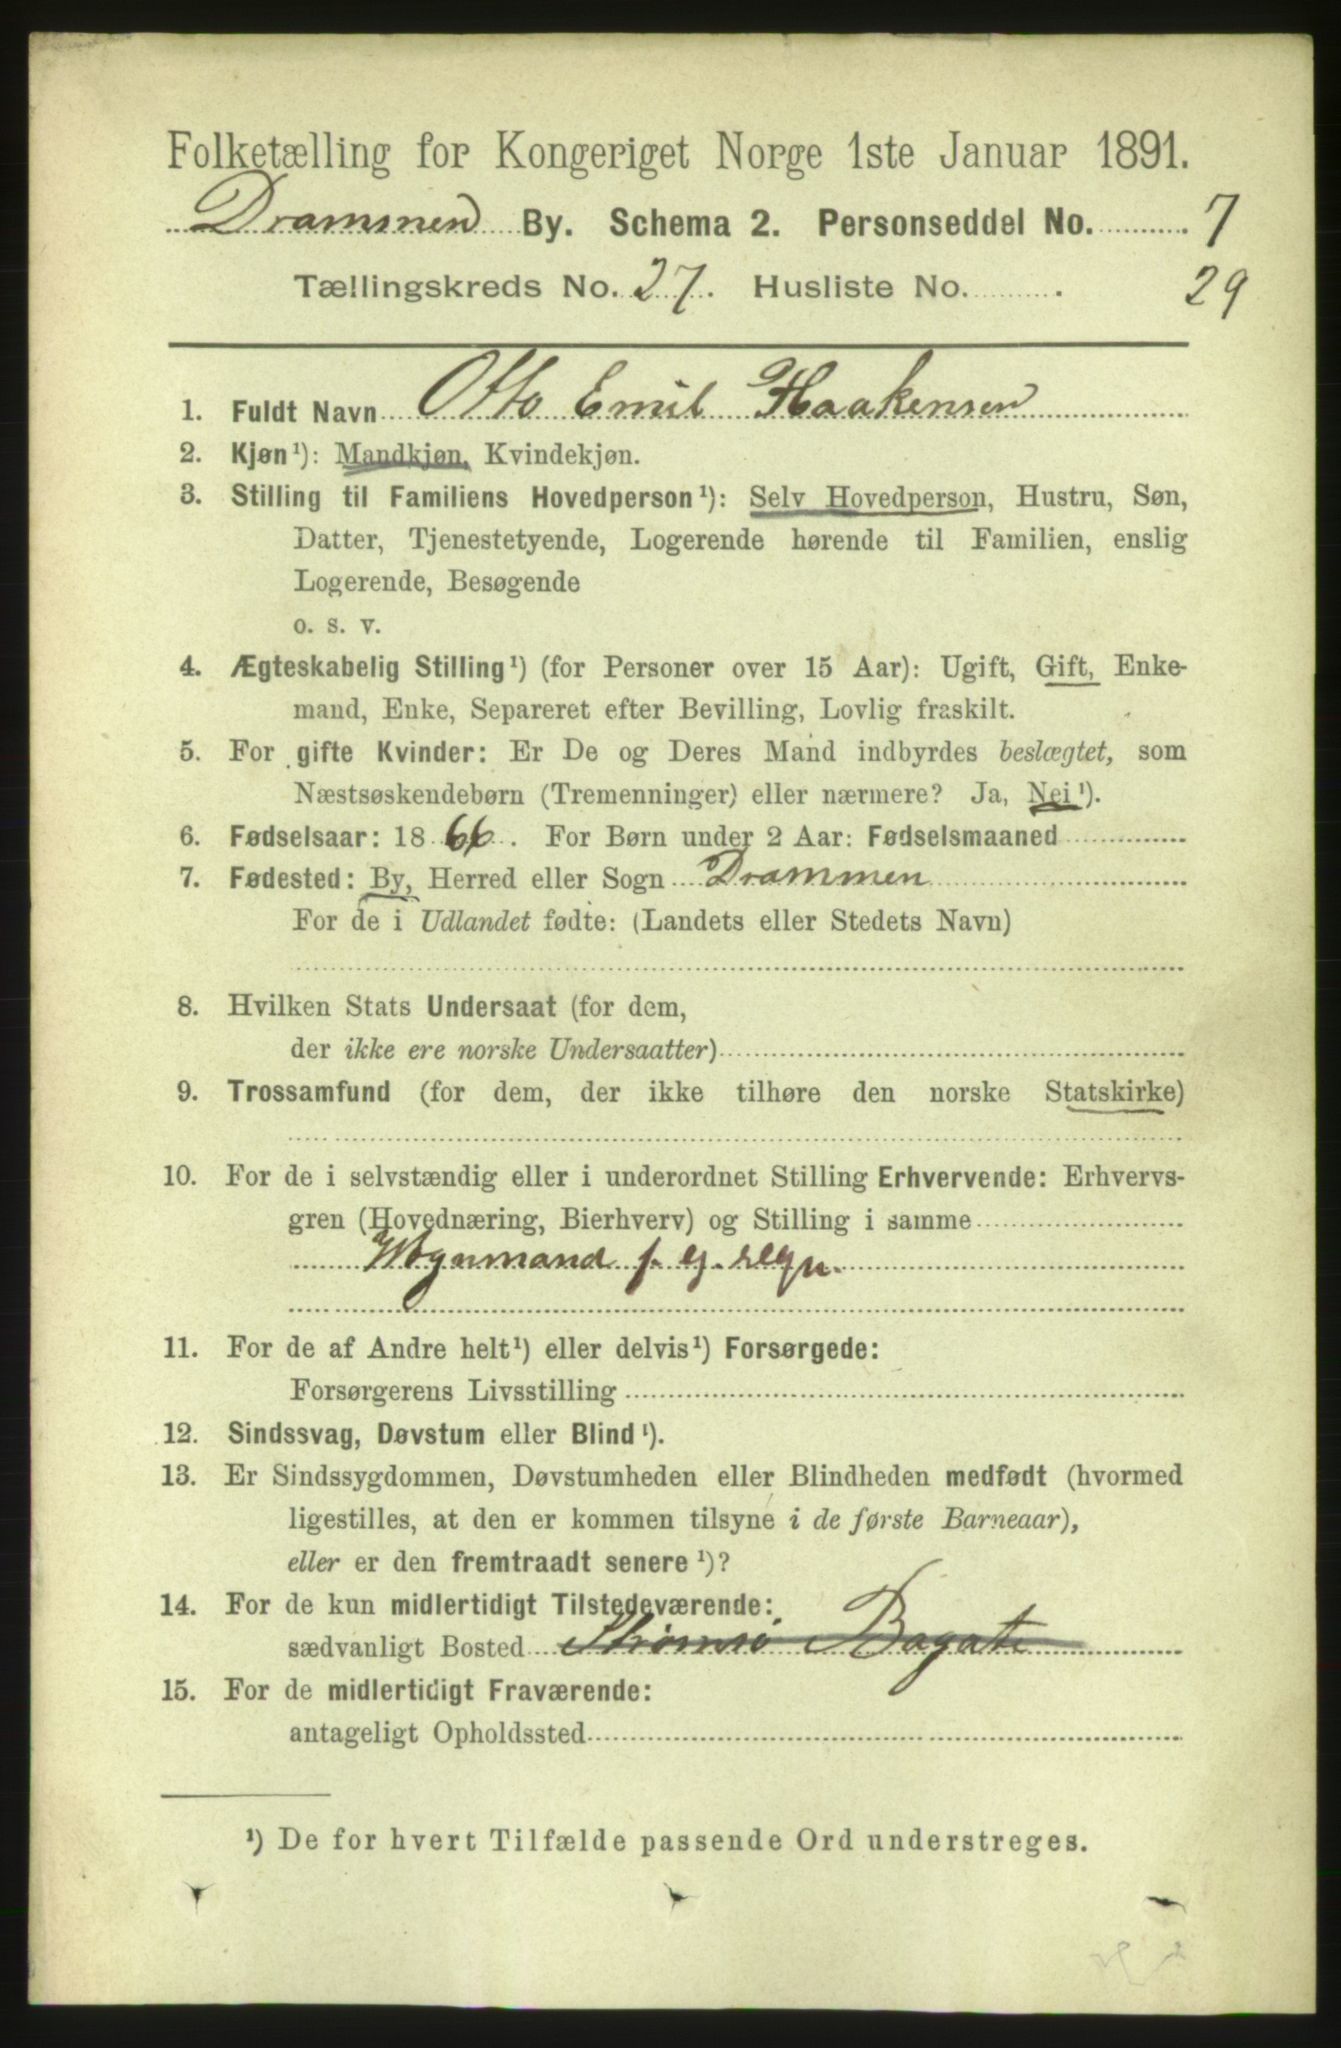 Folketælling for Kongeriget Norge 1ste Januar 1891.
Drammen By. Schema 2. Personseddel No. 7
Tællingskreds No. 27. Husliste No. 29
1. Fuldt Navn Otto Emil Haakensen
2. Kjøn¹): Mandkjøn, Kvindekjøn.
3. Stilling til Familiens Hovedperson¹): Selv Hovedperson, Hustru, Søn,
Datter, Tjenestetyende, Logerende hørende til Familien, enslig
Logerende, Besøgende
o. s. v.
4. Ægteskabelig Stilling¹) (for Personer over 15 Aar): Ugift, Gift, Enke-
mand, Enke, Separeret efter Bevilling, Lovlig fraskilt.
5. For gifte Kvinder: Er De og Deres Mand indbyrdes beslægtet, som
Næstsøskendebørn (Tremenninger) eller nærmere? Ja, Nei¹).
6. Fødselsaar: 1866. For Børn under 2 Aar: Fødselsmaaned
7. Fødested: By, Herred eller Sogn Drammen
For de i Udlandet fødte: (Landets eller Stedets Navn)
8. Hvilken Stats Undersaat (for dem,
der ikke ere norske Undersaatter)
9. Trossamfund (for dem, der ikke tilhøre den norske Statskirke)
10. For de i selvstændig eller i underordnet Stilling Erhvervende: Erhvervs-
gren (Hovednæring, Bierhverv) og Stilling i samme
Vognmand f. eg. regn.
11. For de af Andre helt¹) eller delvis¹) Forsørgede:
Forsørgerens Livsstilling
12. Sindssvag, Døvstum eller Blind¹).
13. Er Sindssygdommen, Døvstumheden eller Blindheden medfødt (hvormed
ligestilles, at den er kommen tilsyne i de første Barneaar),
eller er den fremtraadt senere¹)?
14. For de kun midlertidigt Tilstedeværende:
sædvanligt Bosted Strømsø Bagate
15. For de midlertidigt Fraværende:
antageligt Opholdssted
¹) De for hvert Tilfælde passende Ord understreges.